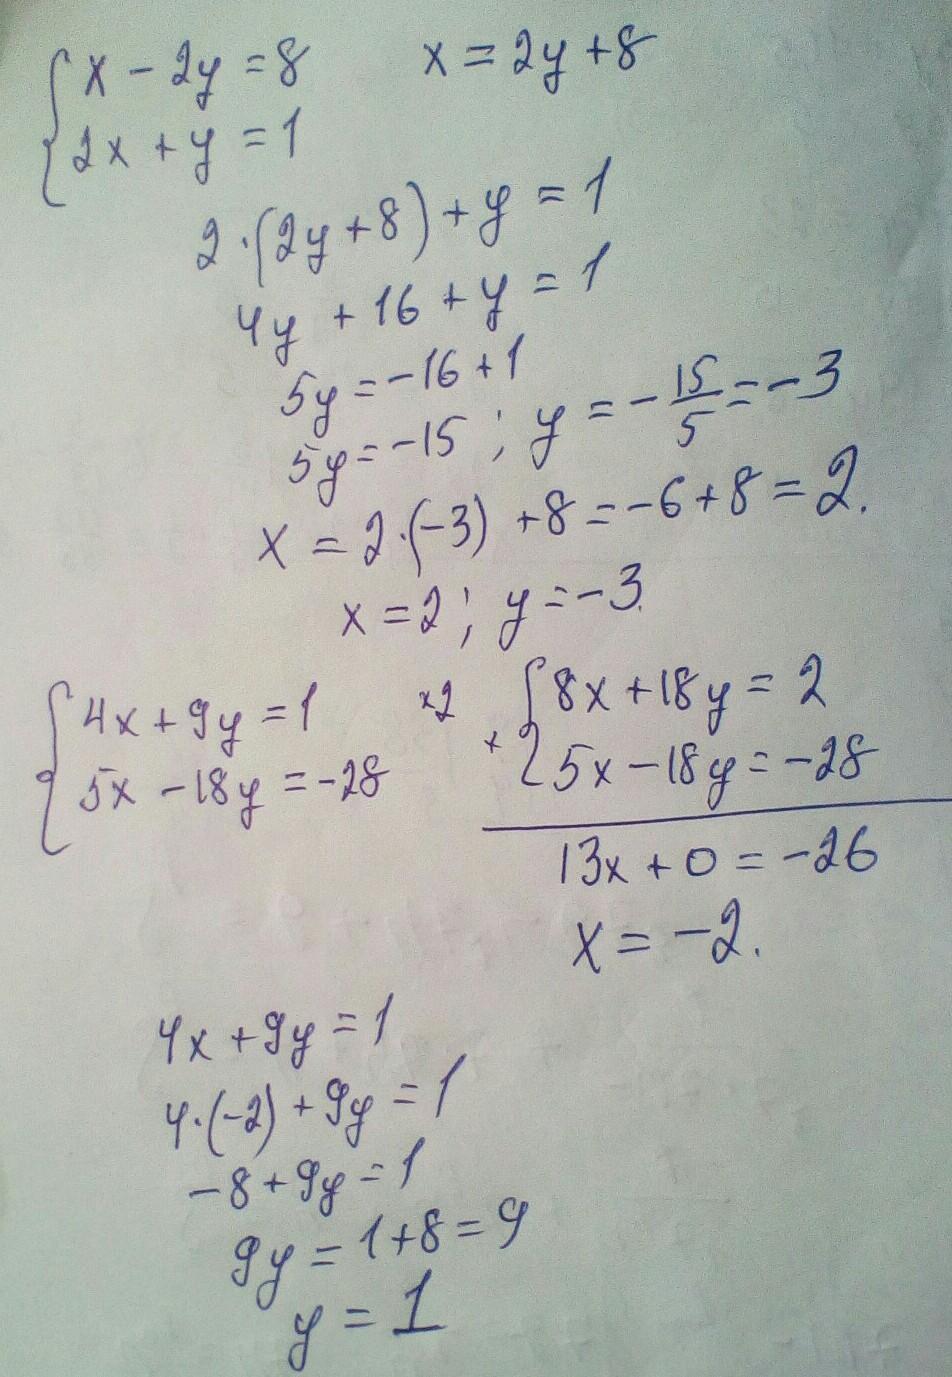 { x - 2y = 8      x = 2y + 8
2x + y = 1
2·(2y + 8) + y = 1
4y + 16 + y = 1
5y = -16 + 1
5y = -15 ; y = -15/5 = -3
x = 2·(-3) + 8 = -6 + 8 = 2.
x = 2 ; y = -3.
{ 4x + 9y = 1   ×2   { 8x + 18y = 2
5x - 18y = -28   + 5x - 18y = -28
13x + 0 = -26
x = -2.
4x + 9y = 1
4·(-2) + 9y = 1
-8 + 9y = 1
9y = 1 + 8 = 9
y = 1